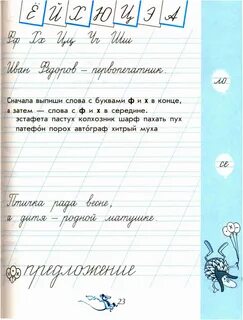 Ё Й Х Ю Ц Э А
Фф Хх Цц Чч Шш
Иван Фёдоров – первопечатник.
ло
Сначала выпиши слова с буквами ф и х в конце,
а затем — слова с ф и х в середине.
эстафета пастух колхозник шарф пахать пух
патефон порох автограф хитрый муха
се
Птичка рада весне,
а дитя – родной матушке.
предложение
23